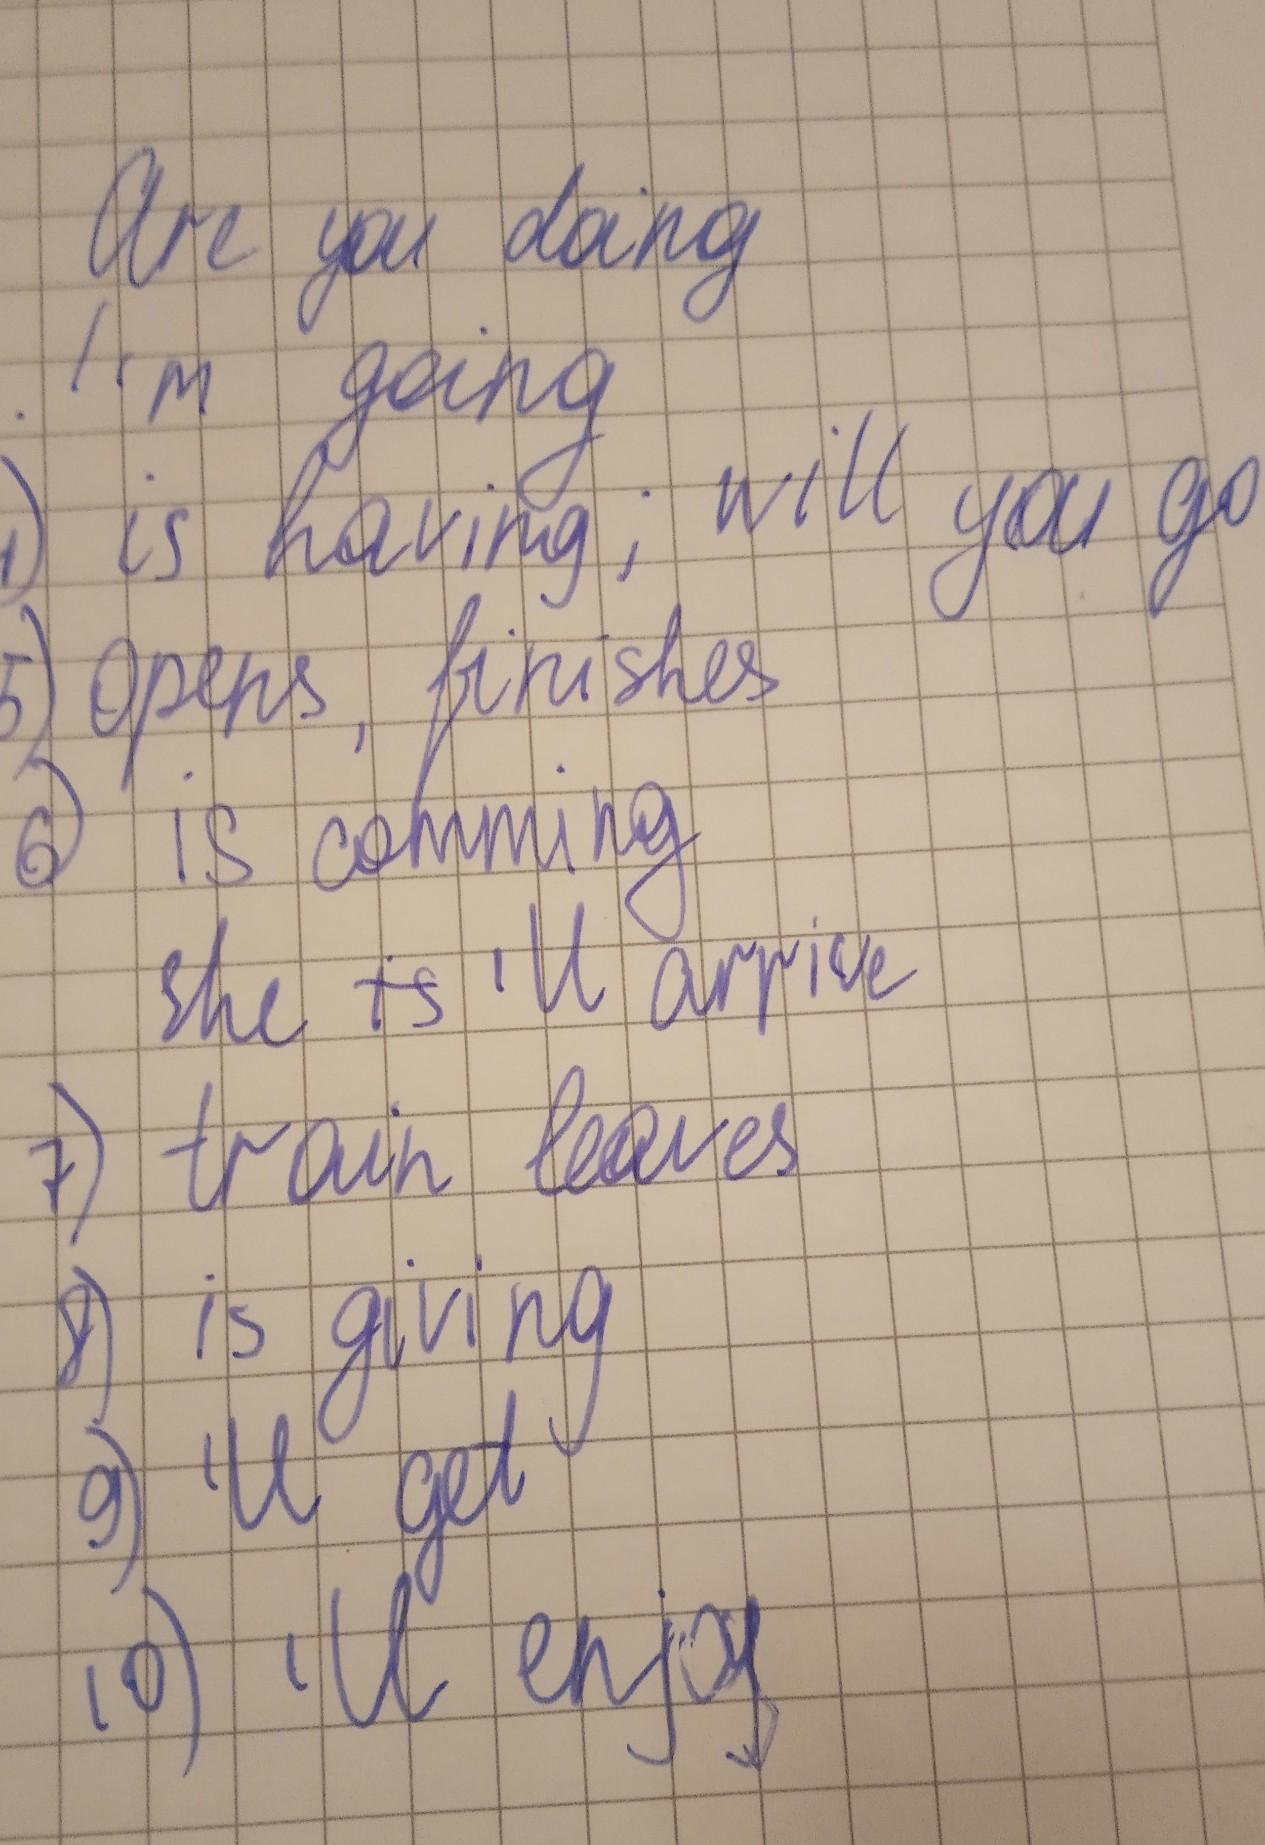 Are you doing
. I'm going
4) is having; will you go
5) opens, finishes
6) is comming
she is 'll arrive
7) train leaves
8) is giving
9) 'll get
10) 'll enjoy